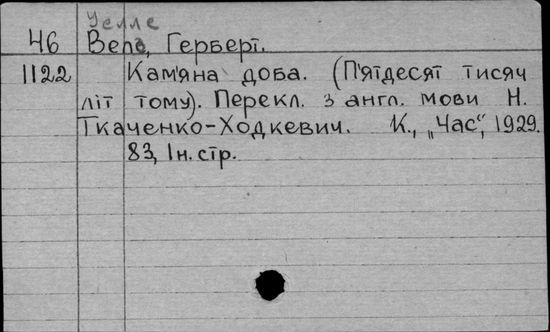 Уелле
46 Велс, Герберт.
1122 Кам'яна доба. (П'ятдесят тисяч
літ тому). Перекл. з англ. мови Н.
Ткаченко-Ходкевич. К., „Час“, 1929.
83, 1 н. стр.